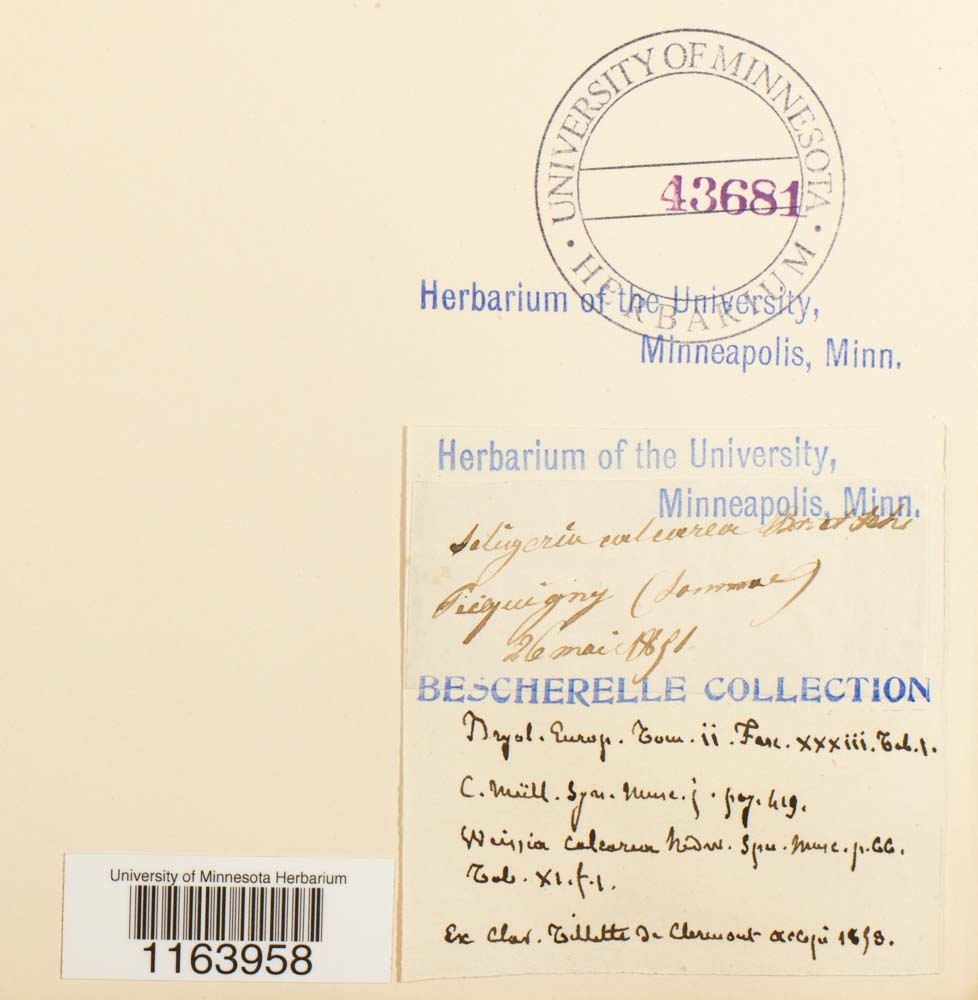 UNIVERSITY OF MINNESOTA
43681
• HERBARIUM •
Herbarium of the University,
Minneapolis, Minn.
Herbarium of the University,
Minneapolis, Minn.
Seligeria calcarea Br. et Sch
Picquigny (Somme)
26 mai 1851
BESCHERELLE COLLECTION
Bryol. Europ. Tom. ii. Fasc. xxxiii. Tab. 1.
C. Müll. Syn. Musc. j. pag. 419.
Weissia calcarea Hedw. Spec. Musc. p. 66.
Tab. XI. f. 1.
Ex Clar. Tillette de Clermont accepi 1858.
University of Minnesota Herbarium
1163958